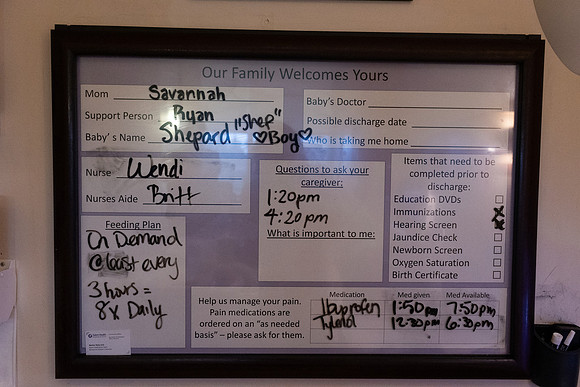 Our Family Welcomes Yours
Mom Savannah
Support Person Ryan
Baby's Name Shepard "Shep" ♡Boy♡
Baby's Doctor
Possible discharge date
Who is taking me home
Nurse Wendi
Nurses Aide Britt
Feeding Plan
On Demand
@ least every
3 hours =
8x Daily
Questions to ask your
caregiver:
1:20pm
4:20pm
What is important to me:
Items that need to be
completed prior to
discharge:
Education DVDs
Immunizations X
Hearing Screen X
Jaundice Check
Newborn Screen
Oxygen Saturation
Birth Certificate
Help us manage your pain.
Pain medications are
ordered on an "as needed
basis" – please ask for them.
Medication Med given Med Available
Ibuprofen 1:50pm 7:50pm
Tylenol 12:30pm 6:30pm